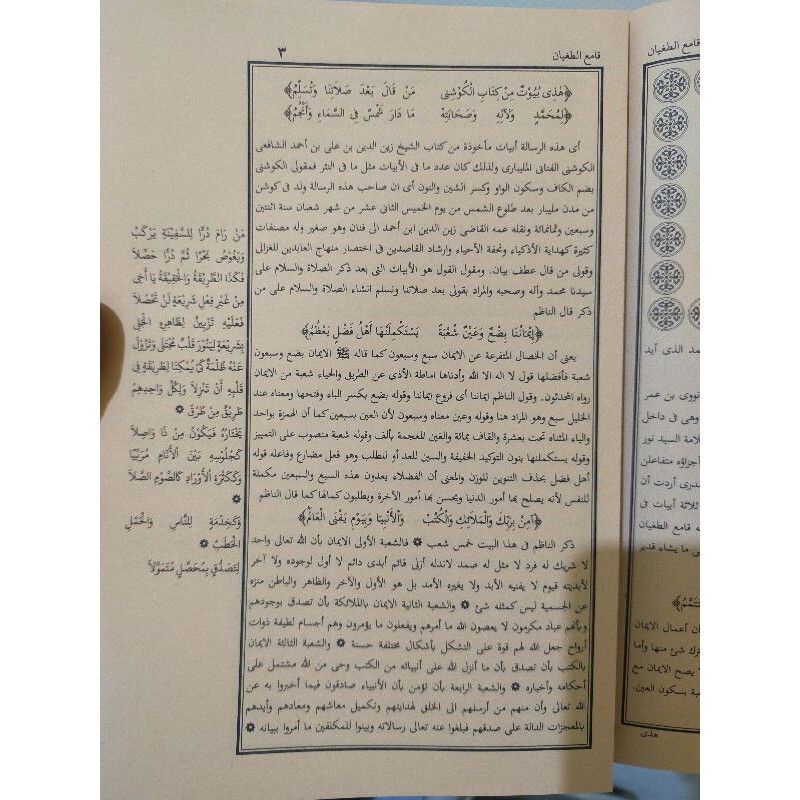 قامع الطغيان
٣
﴿هٰذِى بُيُوتٌ مِنْ كِتَابِ الْكُوْشِنِى مَنْ قَالَ بَعْدَ صَلَاتِنَا وَنُسَلِّمُ﴾
﴿لِمُحَمَّدٍ وَلِآلِهِ وَصَحَابَتِهْ مَا دَارَ شَمْسٌ فِى السَّمَاءِ وَأَنْجُمُ﴾
أى هذه الرسالة أبيات مأخوذة من كتاب الشيخ زين الدين بن على بن أحمد الشافعى
الكوشنى الفنانى المليبارى ولذلك كان عدد ما فى الأبيات مثل ما فى النثر فمقولى الكوشنى
بضم الكاف وسكون الواو وكسر الشين والنون أى ان صاحب هذه الرسالة ولد فى كوشن
من مدن مليبار بعد طلوع الشمس من يوم الخميس الثانى عشر من شهر شعبان سنة اثنتين
وسبعين وثمانمائة ونقله عمه القاضى زين الدين ابن أحمد الى فنان وهو صغير وله مصنفات
كثيرة كهداية الأذكياء وتحفة الأحياء وارشاد القاصدين فى اختصار منهاج العابدين للغزالى
وقولى من قال عطف بيان. ومقول القول هو الأبيات التى بعد ذكر الصلاة والسلام على
سيدنا محمد وآله وصحبه والمراد بقولى بعد صلاتنا ونسلم انشاء الصلاة والسلام على من
ذكر قال الناظم
﴿إِيْمَانُنَا بِضْعٌ وَعَيْنٌ شُعْبَةً يَسْتَكْمِلَنْهَا أَهْلُ فَضْلٍ يَعْظُمُ﴾
يعنى أن الخصال المتفرعة عن الايمان سبع وسبعون كما قاله ﷺ الايمان بضع وسبعون
شعبة فأفضلها قول لا اله الا الله وأدناها اماطة الأذى عن الطريق والحياء شعبة من الايمان
رواه المحدثون. وقول الناظم ايماننا أى فروع ايماننا وقوله بضع بكسر الباء وفتحها ومعناه عند
الخليل سبع وهو المراد هنا وقوله وعين معناه وسبعون لأن العين بسبعين كما أن الهمزة بواحد
والياء المثناه تحت بعشرة والقاف بمائة والغين المعجمة بألف وقوله شعبة منصوب على التمييز
وقوله يستكملنها بنون التوكيد الخفيفة والسين للعد أو للطلب وهو فعل مضارع وفاعله قوله
أهل فضل بحذف التنوين للوزن والمعنى أن الفضلاء يعدون هذه السبع والسبعين مكملة
للنفس لأنه يصلح بها أمور الدنيا ويحسن بها أمور الآخرة ويطلبون كمالها كما قال الناظم
﴿آمِنْ بِرَبِّكَ وَالْمَلَائِكِ وَالْكُتُبْ وَالْأَنْبِيَا وَبِيَوْمِ يَفْنَى الْعَالَمُ﴾
ذكر الناظم فى هذا البيت خمس شعب ۞ فالشعبة الأولى الايمان بأن الله تعالى واحد
لا شريك له فرد لا مثل له صمد لاندله أزلى قائم أبدى دائم لا أول لوجوده ولا آخر
لأبديته قيوم لا يفنيه الأبد ولا يغيره الأمد بل هو الأول والآخر والظاهر والباطن منزه
عن الجسمية ليس كمثله شئ ۞ والشعبة الثانية الايمان بالملائكة بأن تصدق بوجودهم
وبأنهم عباد مكرمون لا يعصون الله ما أمرهم ويفعلون ما يؤمرون وهم أجسام لطيفة ذوات
أرواح جعل الله لهم قوة على التشكل بأشكال مختلفة حسنة ۞ والشعبة الثالثة الايمان
بالكتب بأن تصدق بأن ما أنزل الله على أنبيائه من الكتب وحى من الله مشتمل على
أحكامه وأخباره ۞ والشعبة الرابعة بأن تؤمن بأن الأنبياء صادقون فيما أخبروا به عن
الله تعالى وأن منهم من أرسلهم الى الخلق لهدايتهم وتكميل معاشهم ومعادهم وأيدهم
بالمعجزات الدالة على صدقهم فبلغوا عنه تعالى رسالاته وبينوا للمكلفين ما أمروا ببيانه ۞
مَنْ رَامَ دُرًّا لِلسَّفِيْنَةِ يَرْكَبُ
وَيَغُوْصُ بَحْرًا ثُمَّ دُرًّا حَصَلَا
فَكَذَا الطَّرِيْقَةُ وَالْحَقِيْقَةُ يَا أَخِى
مِنْ غَيْرِ فِعْلِ شَرِيْعَةٍ لَنْ تَحْصُلَا
فَعَلَيْهِ تَزْيِيْنٌ لِظَاهِرِهِ الْجَلِى
بِشَرِيْعَةٍ لِيَنُوْرَ قَلْبٌ مُجْتَلَى وَتَزُوْلَ
عَنْهُ ظُلْمَةٌ كَىْ يُمْكِنَا لِطَرِيْقَةٍ فِى
قَلْبِهِ أَنْ تَنْزِلَا وَلِكُلِّ وَاحِدِهِمْ
طَرِيْقٌ مِنْ طُرُقْ ۞
يَخْتَارُهُ فَيَكُوْنُ مِنْ ذَا وَاصِلَا
كَجُلُوْسِهِ بَيْنَ الْأَنَامِ مُرَبِّيًا
وَكَكَثْرَةِ الْأَوْرَادِ كَالصَّوْمِ الصَّلَا
۞
وَكَخِدْمَةٍ لِلنَّاسِ وَالْحَمْلِ
الْحَطَبْ ۞
لِتَصَدُّقٍ بِمُحَصَّلٍ مُتَمَوَّلَا
قامع الطغيان
مد الذى أيد
نووى بن عمر
وهى فى داخل
لامة السيد نور
أجزاؤه متفاعلن
مدرى أردت أن
ثلاثة أبيات فى
ه قامع الطغيان
ى ما يشاء قدير
ن أعمال الايمان
ترك شئ منها وأما
يصح الايمان مع
بة بسكون العين
هذى